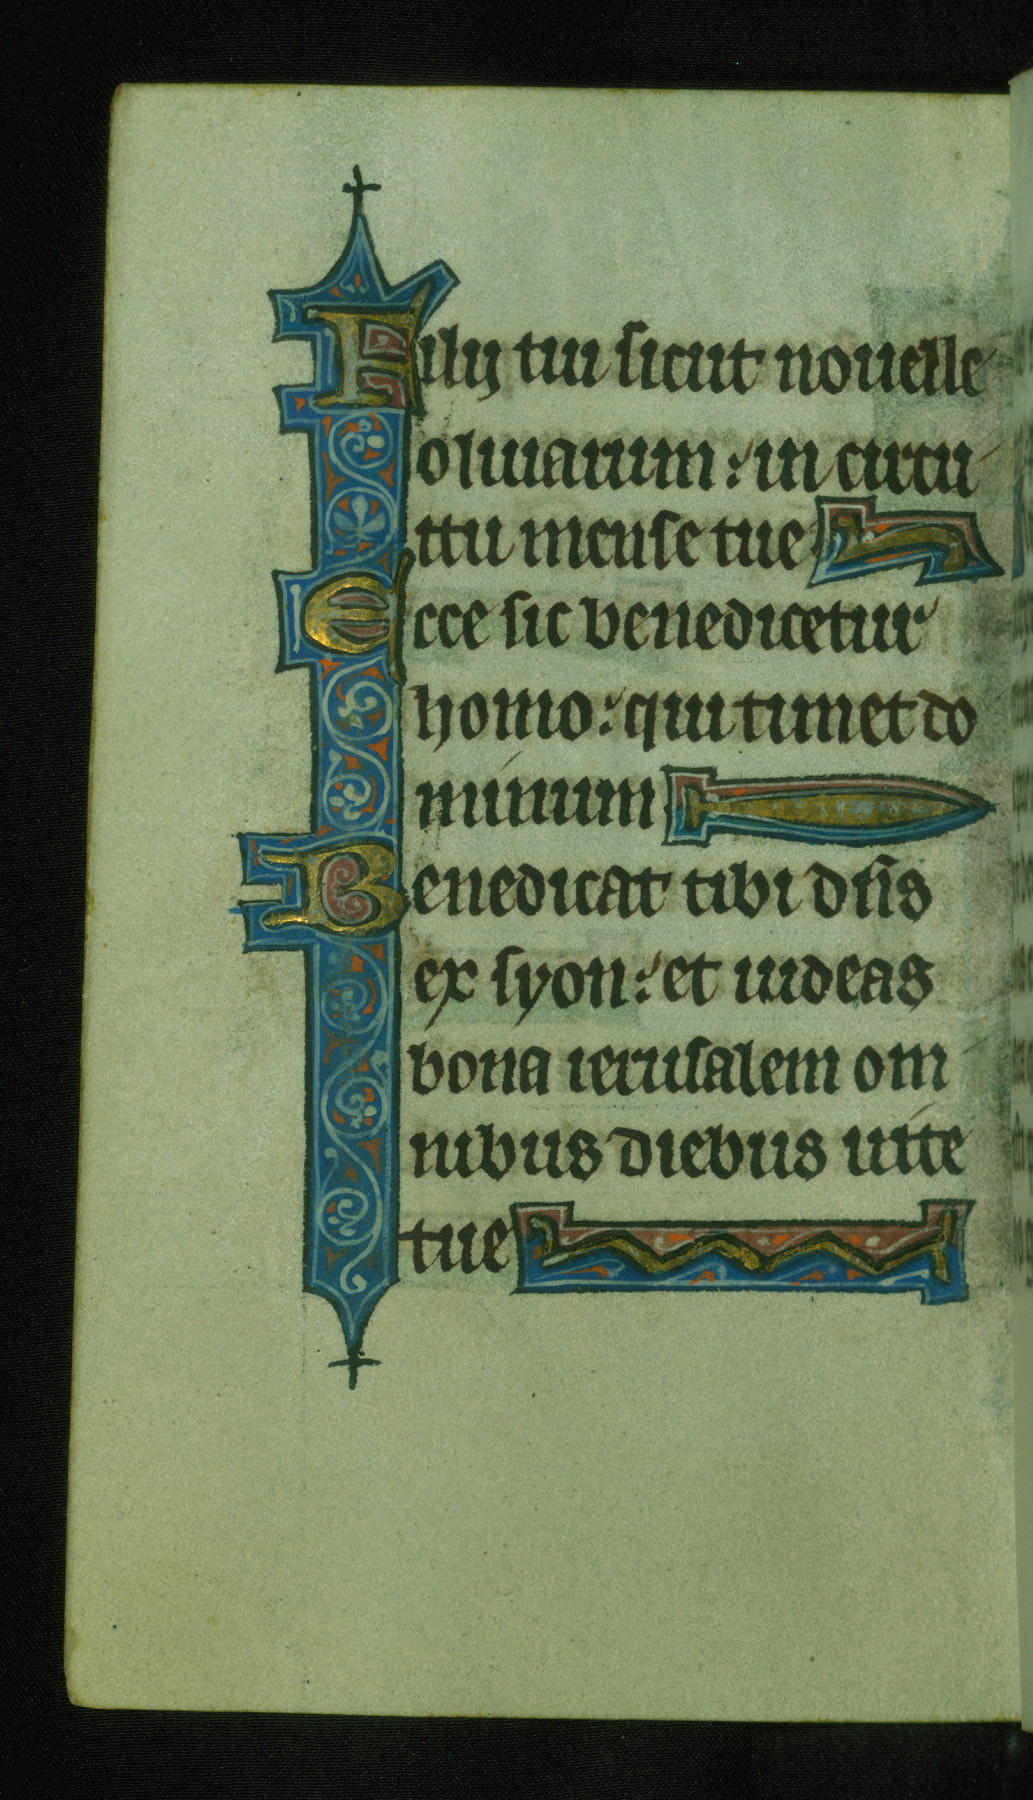 Filij tui sicut nouelle
oliuarum: in circu
itu mense tue
Ecce sic benedicetur
homo: qui timet do
minum
Benedicat tibi dñs
ex syon: et uideas
bona ierusalem om
nibus diebus uite
tue